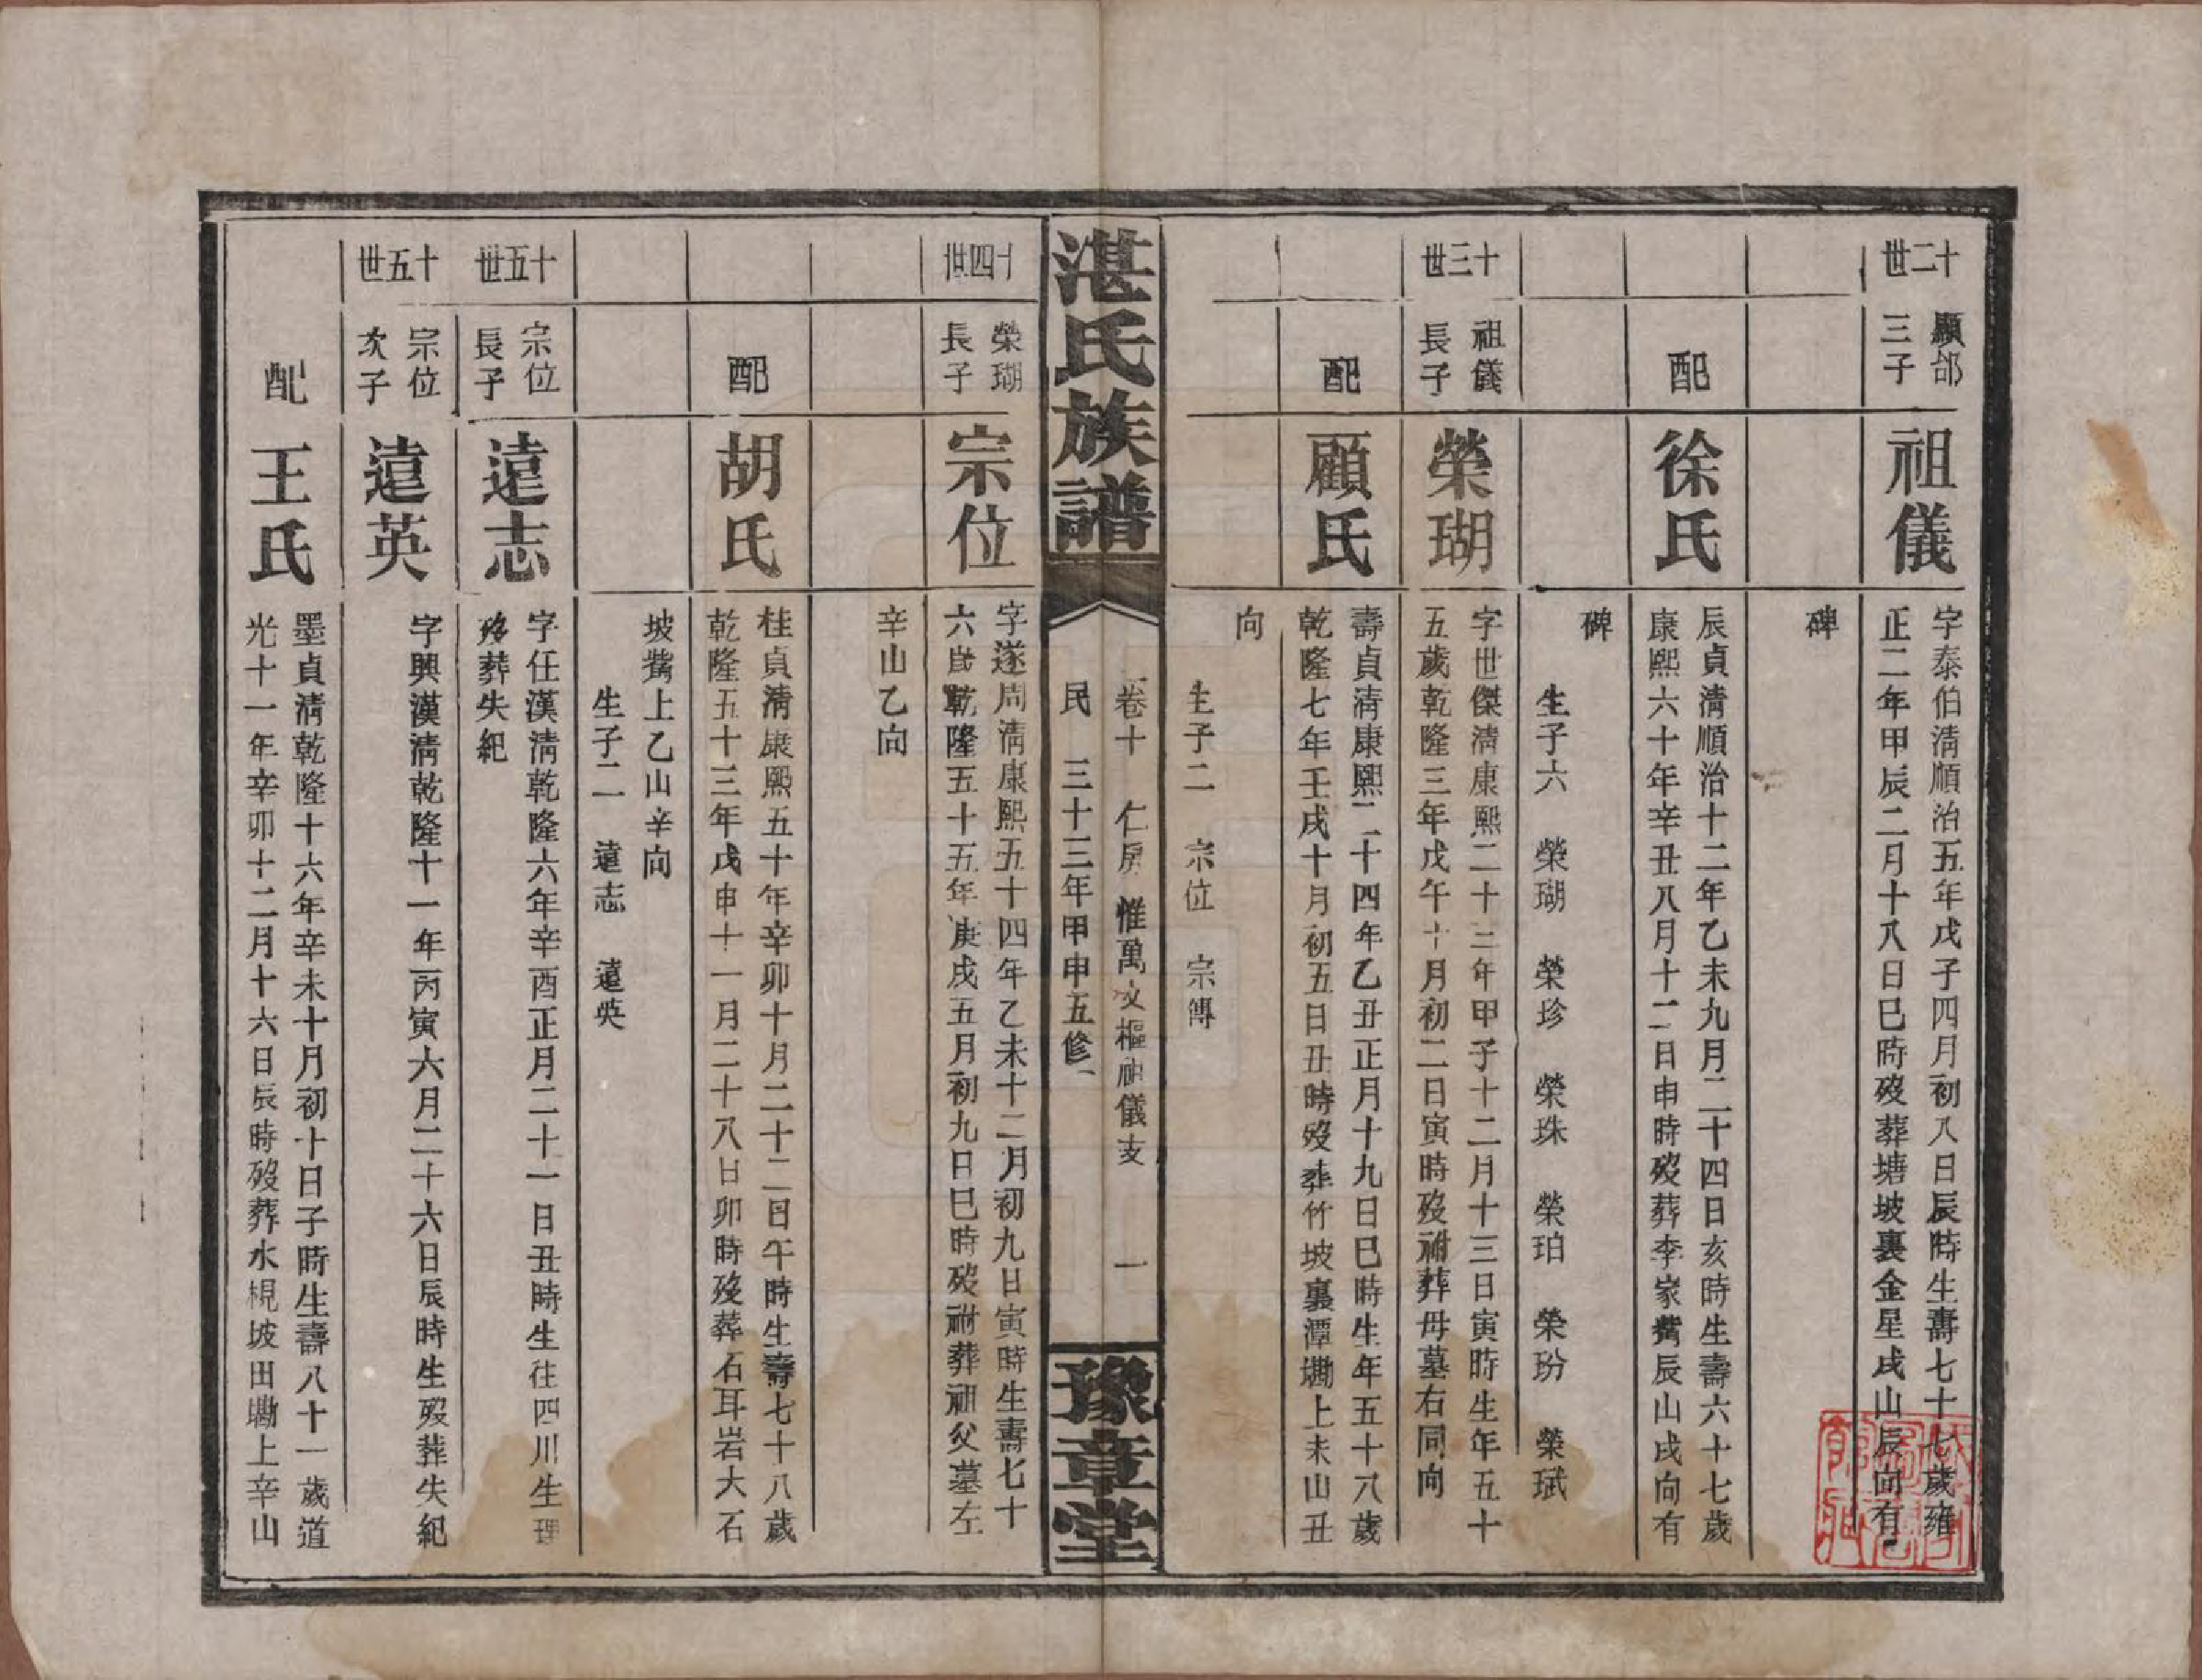 十二世
顯郃
三子
祖儀
字泰伯清順治五年戊子四月初八日辰時生壽七十七歲雍
正二年甲辰二月十八日巳時歿葬塘坡裏金星戌山辰向有
碑
配
徐氏
辰貞清順治十二年乙未九月二十四日亥時生壽六十七歲
康熙六十年辛丑八月十二日申時歿葬李家嘴辰山戌向有
碑
生子六 榮瑚 榮珍 榮珠 榮珀 榮玢 榮珷
十三世
祖儀
長子
榮瑚
字世傑清康熙二十三年甲子十二月十三日寅時生年五十
五歲乾隆三年戊午十月初二日寅時歿祔葬母墓右同向
配
顧氏
壽貞清康熙二十四年乙丑正月十九日巳時生年五十八歲
乾隆七年壬戌十月初五日丑時歿葬竹坡裏潭墈上未山丑
向
生子二 宗位 宗傳
湛氏族譜
卷十 仁房 惟萬文樞祖儀支 一
民 三十三年甲申五修
豫章堂
十四世
榮瑚
長子
宗位
字遂周清康熙五十四年乙未十二月初九日寅時生壽七十
六歲乾隆五十五年庚戌五月初九日巳時歿祔葬祖父墓左
辛山乙向
配
胡氏
桂貞清康熙五十年辛卯十月二十二日午時生壽七十八歲
乾隆五十三年戊申十一月二十八日卯時歿葬石耳岩大石
坡嘴上乙山辛向
生子二 遠志 遠英
十五世
宗位
長子
遠志
字任漢清乾隆六年辛酉正月二十一日丑時生往四川生理
歿葬失紀
十五世
宗位
次子
遠英
字興漢清乾隆十一年丙寅六月二十六日辰時生歿葬失紀
配
王氏
墨貞清乾隆十六年辛未十月初十日子時生壽八十一歲道
光十一年辛卯十二月十六日辰時歿葬水梘坡田墈上辛山